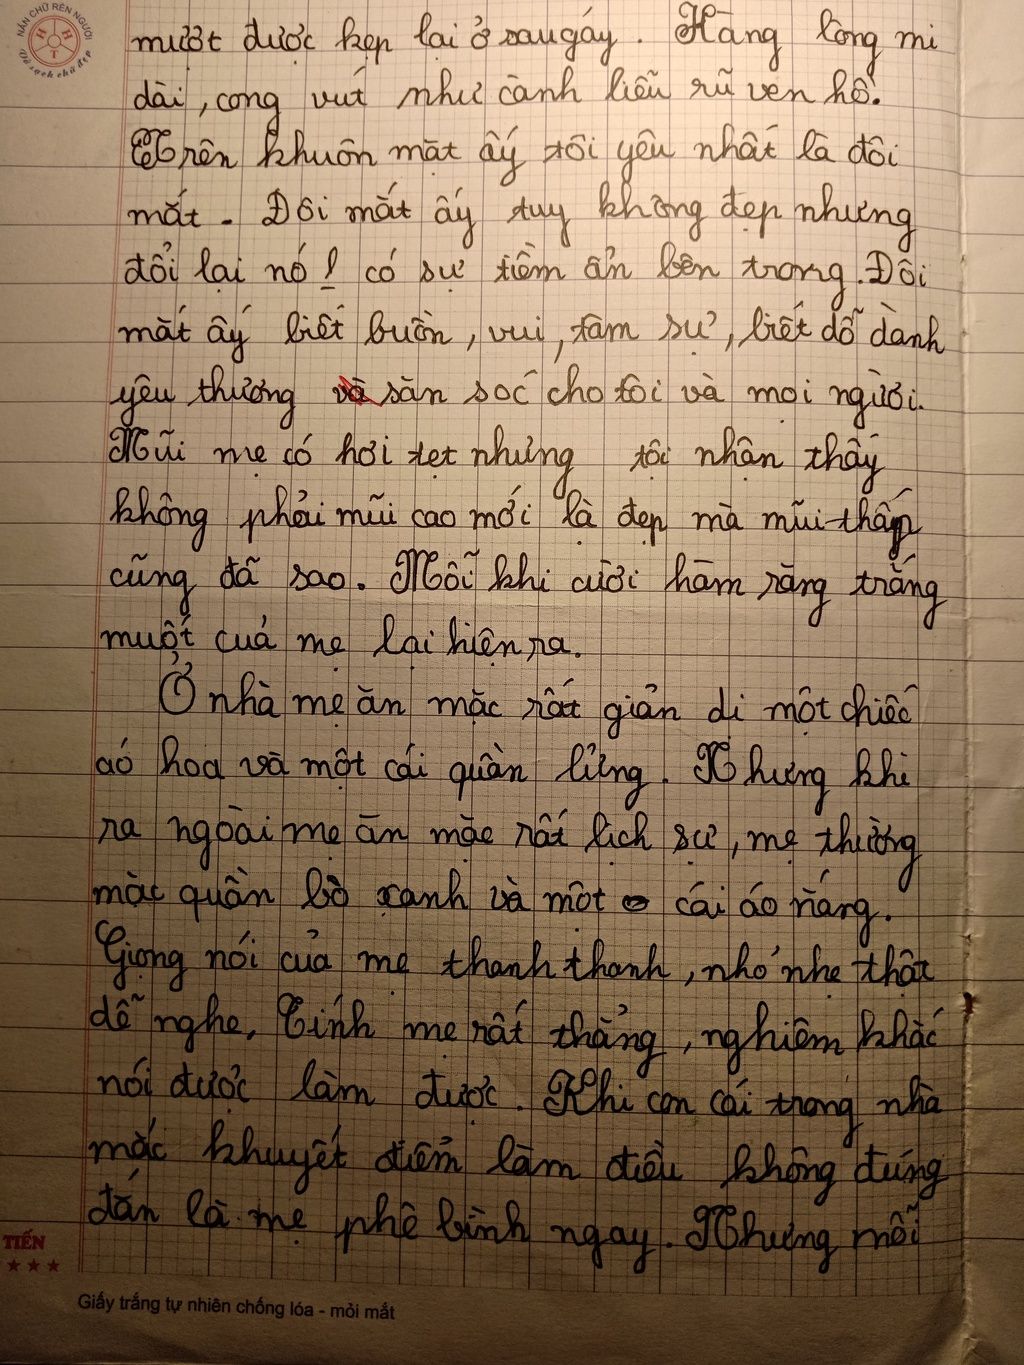 NẮN CHỮ RÈN NGƯỜI
H H T
Vở sạch chữ đẹp
mượt được kẹp lại ở sau gáy. Hàng lông mi
dài, cong vút như cành liễu rũ ven hồ.
Trên khuôn mặt ấy tôi yêu nhất là đôi
mắt. Đôi mắt ấy tuy không đẹp nhưng
đổi lại nó ! có sự tiềm ẩn bên trong. Đôi
mắt ấy biết buồn, vui, tâm sự, biết dỗ dành
yêu thương và săn soc cho tôi và mọi người.
Mũi mẹ có hơi tẹt nhưng tôi nhận thấy
không phải mũi cao mới là đẹp mà mũi thấp
cũng đã sao. Mỗi khi cười hàm răng trắng
muốt cuả mẹ lại hiện ra.
Ở nhà mẹ ăn mặc rất giản dị một chiếc
aó hoa và một cái quần lửng. Nhưng khi
ra ngoài mẹ ăn mặc rất lịch sự, mẹ thường
mặc quần bò xanh và một cái áo nắng.
Giọng nói của mẹ thanh thanh, nhỏ nhẹ thật
dễ nghe. Tính mẹ rất thẳng, nghiêm khắc
nói được làm được. Khi con cái trong nhà
mắc khuyết điểm làm điều không đúng
đắn là mẹ phê bình ngay. Nhưng mỗi
TIẾN
★ ★ ★
Giấy trắng tự nhiên chống lóa - mỏi mắt